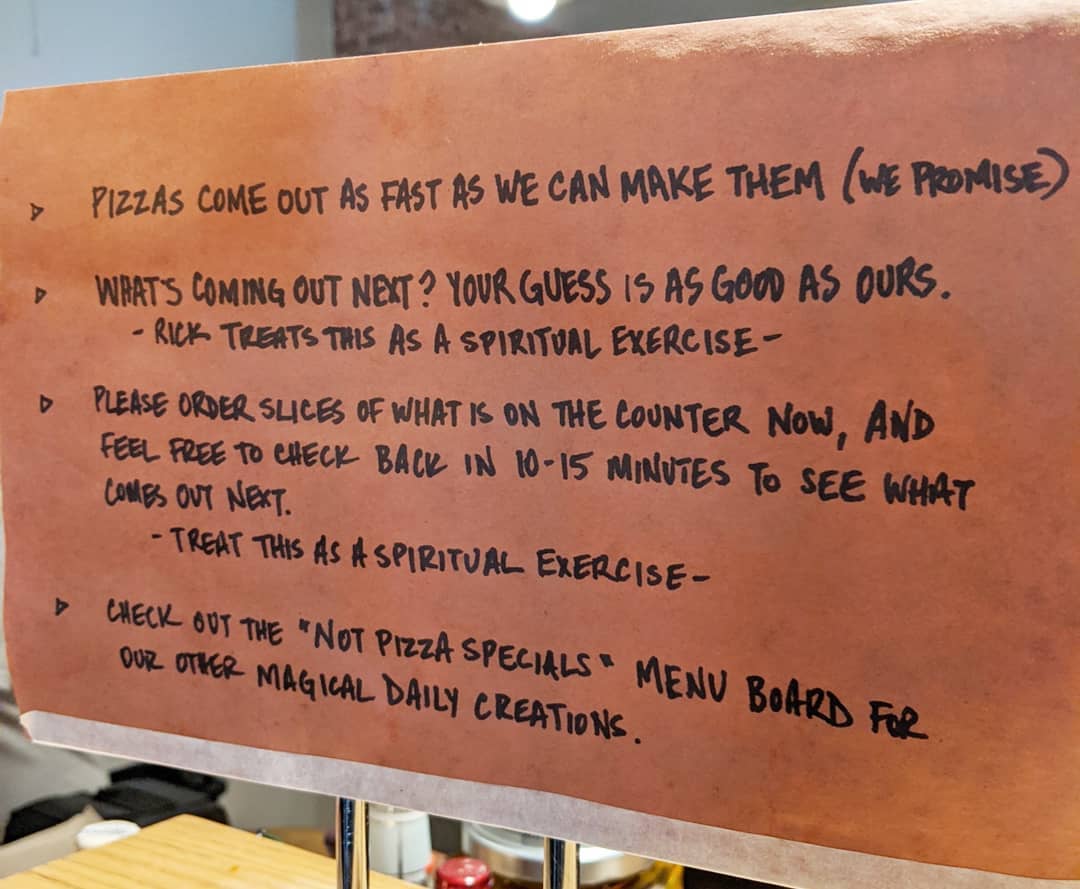 ▷ PIZZAS COME OUT AS FAST AS WE CAN MAKE THEM (WE PROMISE)
▷ WHAT'S COMING OUT NEXT? YOUR GUESS IS AS GOOD AS OURS.
- RICK TREATS THIS AS A SPIRITUAL EXERCISE -
▷ PLEASE ORDER SLICES OF WHAT IS ON THE COUNTER NOW, AND
FEEL FREE TO CHECK BACK IN 10-15 MINUTES TO SEE WHAT
COMES OUT NEXT.
- TREAT THIS AS A SPIRITUAL EXERCISE -
▷ CHECK OUT THE "NOT PIZZA SPECIALS" MENU BOARD FOR
OUR OTHER MAGICAL DAILY CREATIONS.